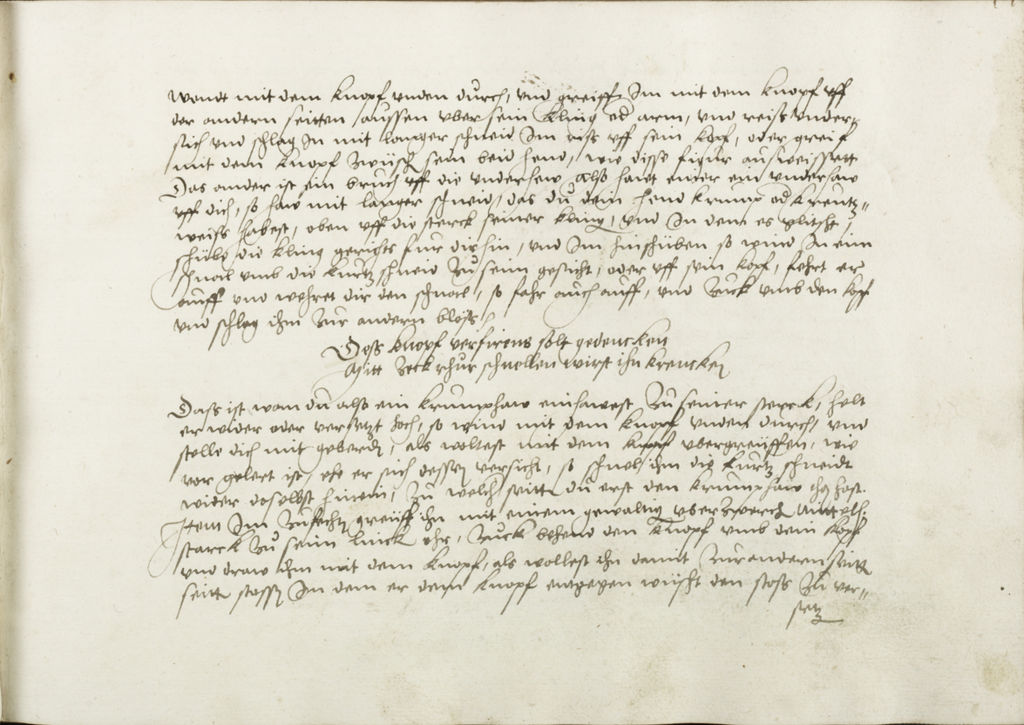 wendt mit dem knopf unden durch, und greiff Im mit dem knopf uff
der andern seitten aussen uber sein kling od arm, und reiss under
sich und schlag In mit langer schneid Im riss uff sein kopf, oder greif
mit dem knopf zwüsch sein beid hend, wie disse figur ausweissett
Das ander ist ein bruch uff die underhew Also haut einer ein underhaw
uff dich, so haw mit langer schneid, das du dein hend krump od kreutz=
weiss habest, oben uff die sterck seiner kling, und In dem es glitscht
schüb die kling gerichts für dir hin, und Im hinschüben so wind In eim
schnal umb die kurtz schneid zu seim gesicht, oder uff sein kopf, fehrt er
auff und wehret dir den schnal, so fahr auch auff, und zuck umb den kopf
und schlag ihm zur andern blöss
Dess knopf verfierens solt gedencken
Mitt schnellen wirst ihn krencken
Dass ist wan du also ein krumphaw einhawest zu seiner sterck, helt
er wider oder versetzt hoch, so wind mit dem knopf unden durch, und
stelle dich mit geberden, als woltest mit dem knopf ubergreiffen, wie
vor gelert ist, ehe er sich dessen versicht, so schnel ihm die kurtz schneidt
wider doselbst hinein, zu welch seitten du erst den krumphaw thon hast.
Item Im zufechten greiff ihn mit einem gewaltig uberzwerch mittelh.
starck zu seim linck ohr, zuck behend den knopf umb dein kopf
und draw ihm mit dem knopf, als wollest ihn damit zur andern
seitt stossen In dem er dem knopf entgegen wüscht den stoss zu ver=
setz